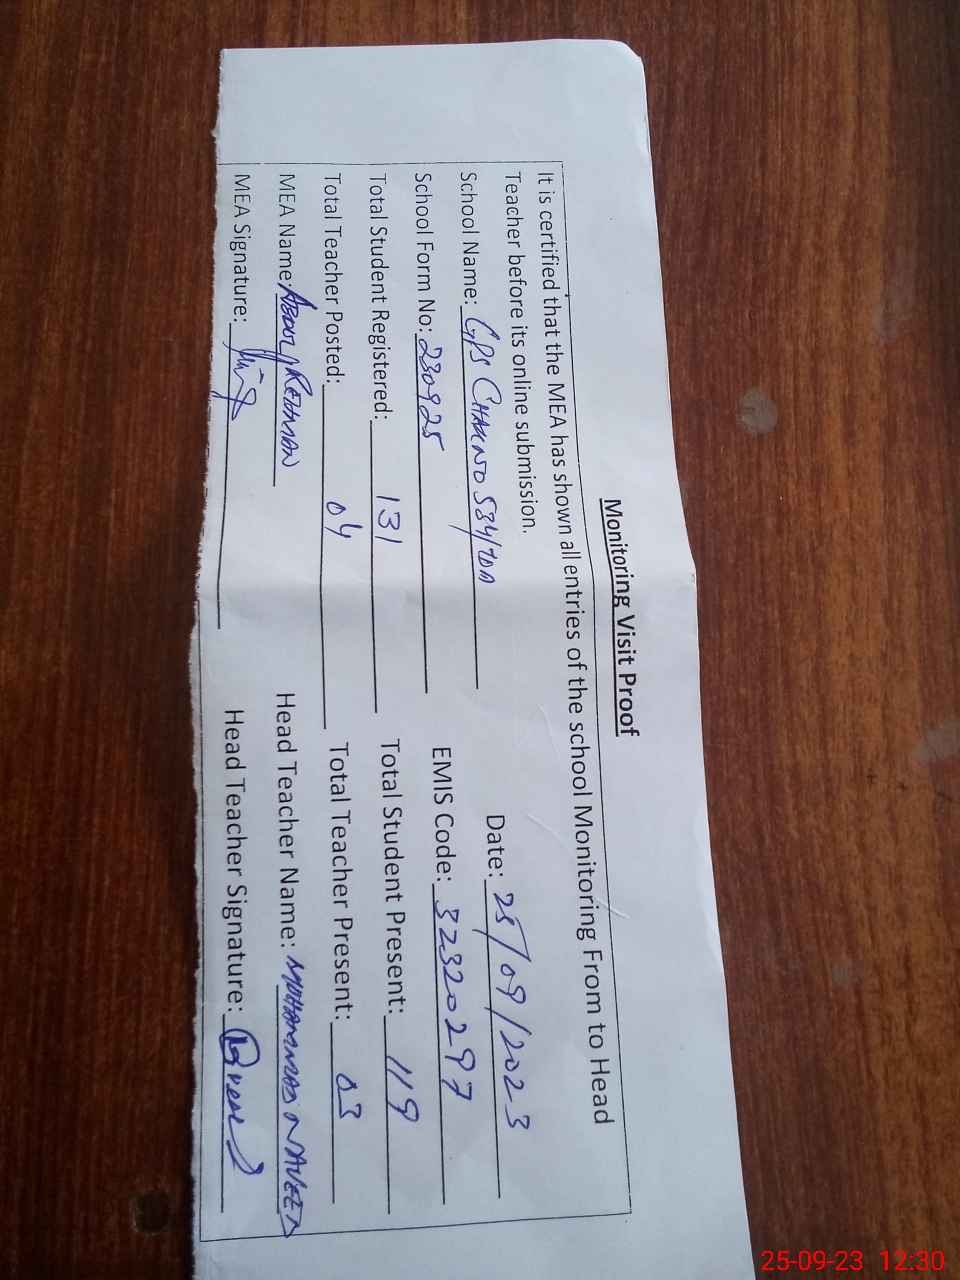 Monitoring Visit Proof
It is certified that the MEA has shown all entries of the school Monitoring From to Head
Teacher before its online submission.
Date: 25/09/2023
School Name: GPS CHAK NO 534/TDA
EMIS Code: 32320297
School Form No: 230925
Total Student Registered: 131
Total Student Present: 119
Total Teacher Posted: 04
Total Teacher Present: 03
MEA Name: ABDUL REHMAN
Head Teacher Name: MUHAMMAD NAVEED
MEA Signature:
Head Teacher Signature:
25-09-23 12:30